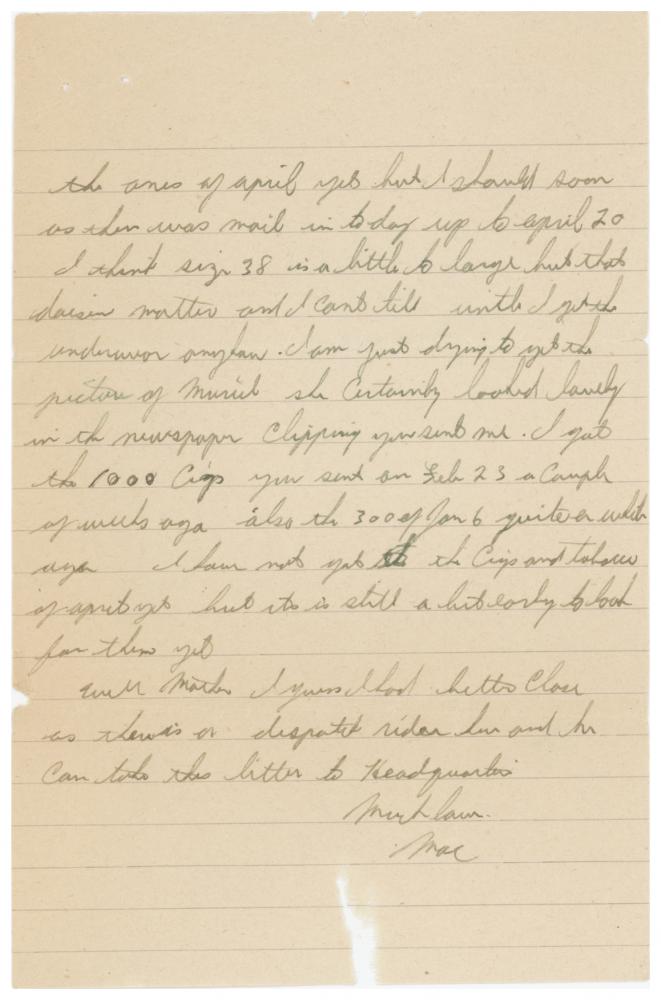 the ones of april yet but I should soon
as ther was mail in today up to april 20
I think size 38 is a little to large but that
dousen matter and I cant till untle I get the
underwor anyhow. I am just drying to get the
picture of Muriel she Certainly looked lovely
in the newspaper Clipping you sent me. I got
the 1000 Cigs you sent on Feb 23 a Couple
of weeks ago also the 300 of Jan 6 quite a while
ago I have not got the Cigs and tobacco
of april yet but its is still a bit early to look
for them yet
Well Mother I guess I had better Close
as ther is a despatch rider her and he
Can take this letter to Headquarters
Much love.
Mac